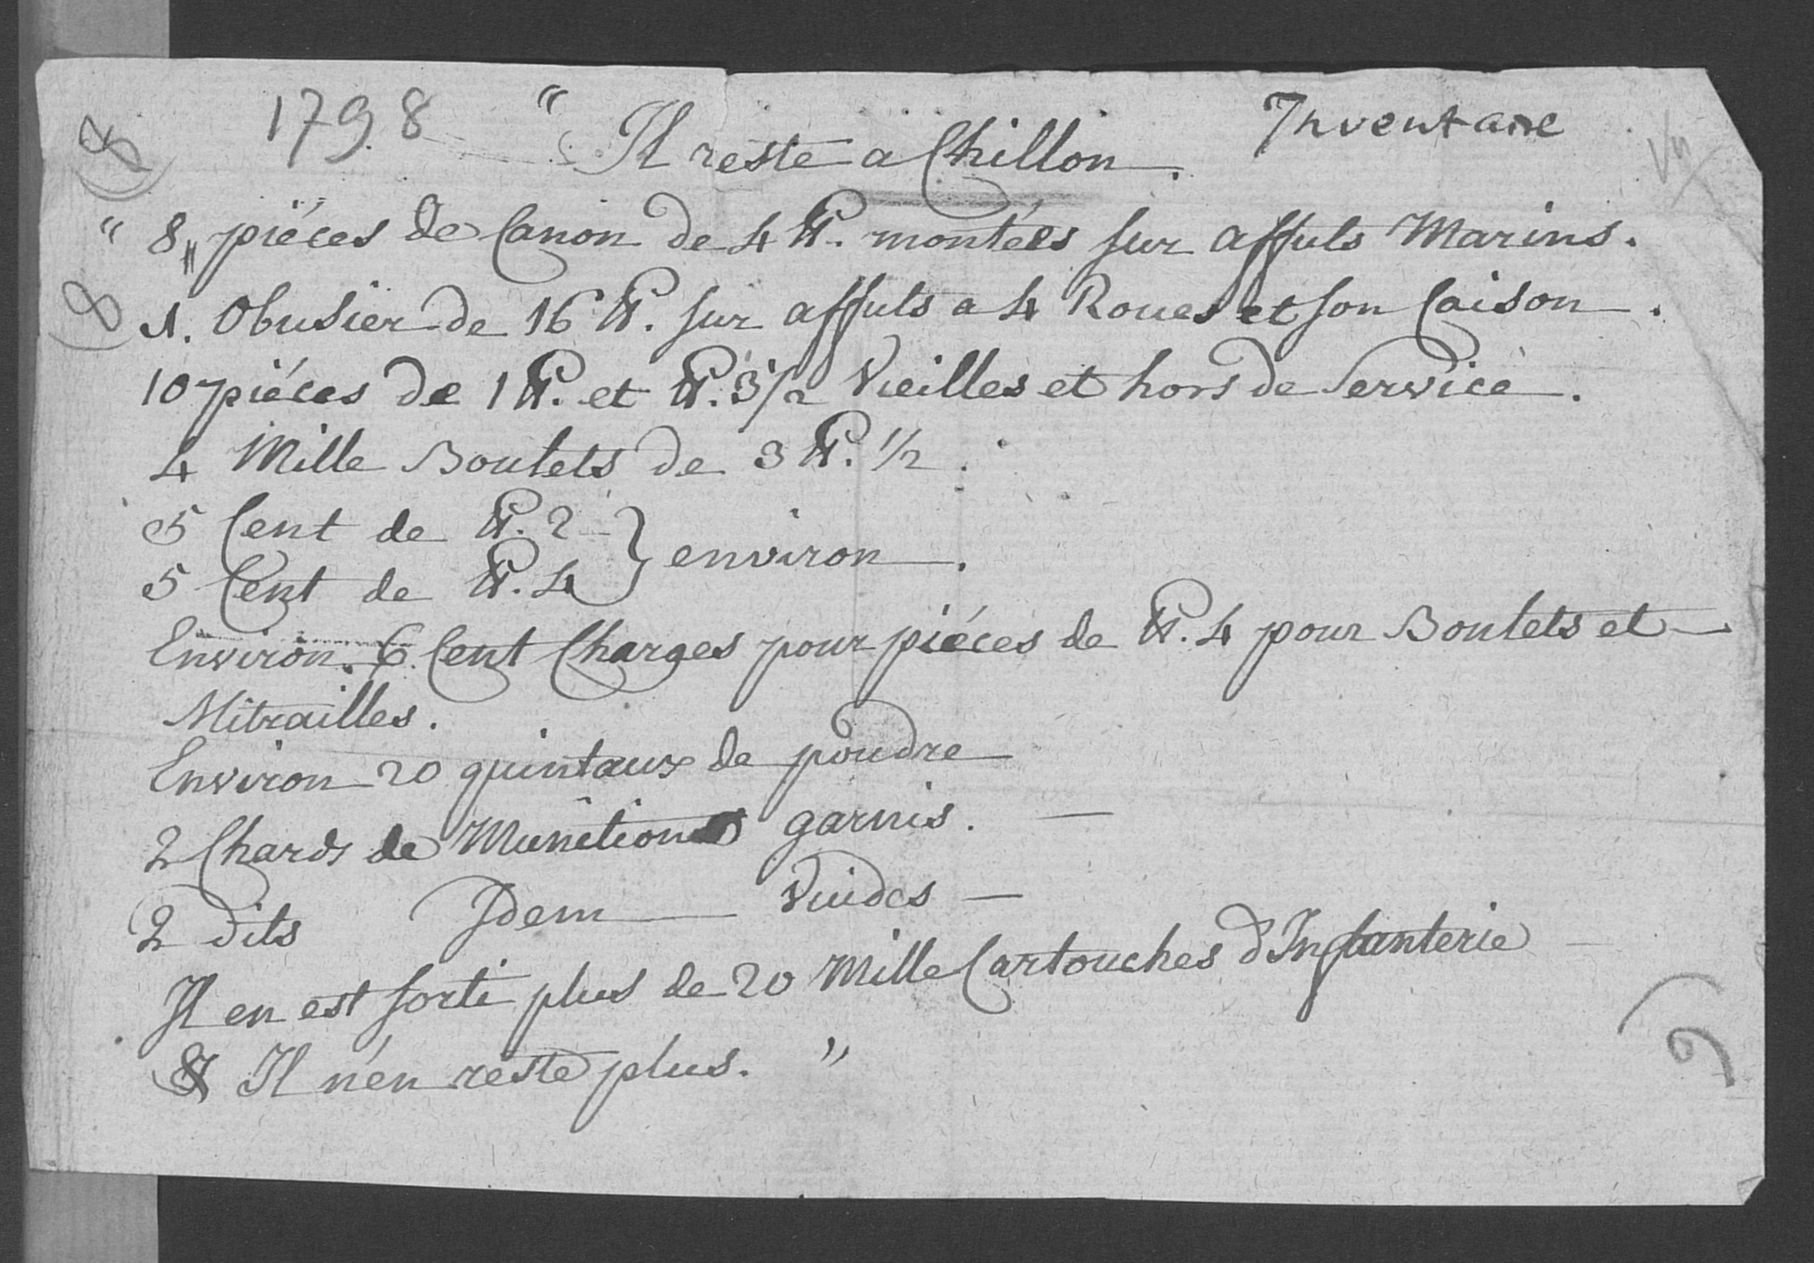 1798 " Il reste a Chillon. Inventaire
(8)
" 8,, piéces de Canon de 4 ℔. montées sur affuts Marins.
(8
1. Obusier de 16 ℔. sur affuts a 4 Roues et son Caison.
10 piéces de 1 ℔. et ℔. 3 1/2 Vieilles et hors de Service.
4 Mille Boulets de 3 ℔. 1/2.
5 Cent de ℔. 2 } environ.
5 Cent de ℔. 4
Environ. 6 Cent Charges pour piéces de ℔. 4 pour Boulets et
Mitrailles.
Environ 20 quintaux de poudre
2 Chards de Munitions garnis. —
2 dits Idem — Vuides —
Il en est sorti plus de 20 Mille Cartouches d'Infanterie
& Il n'en reste plus. "